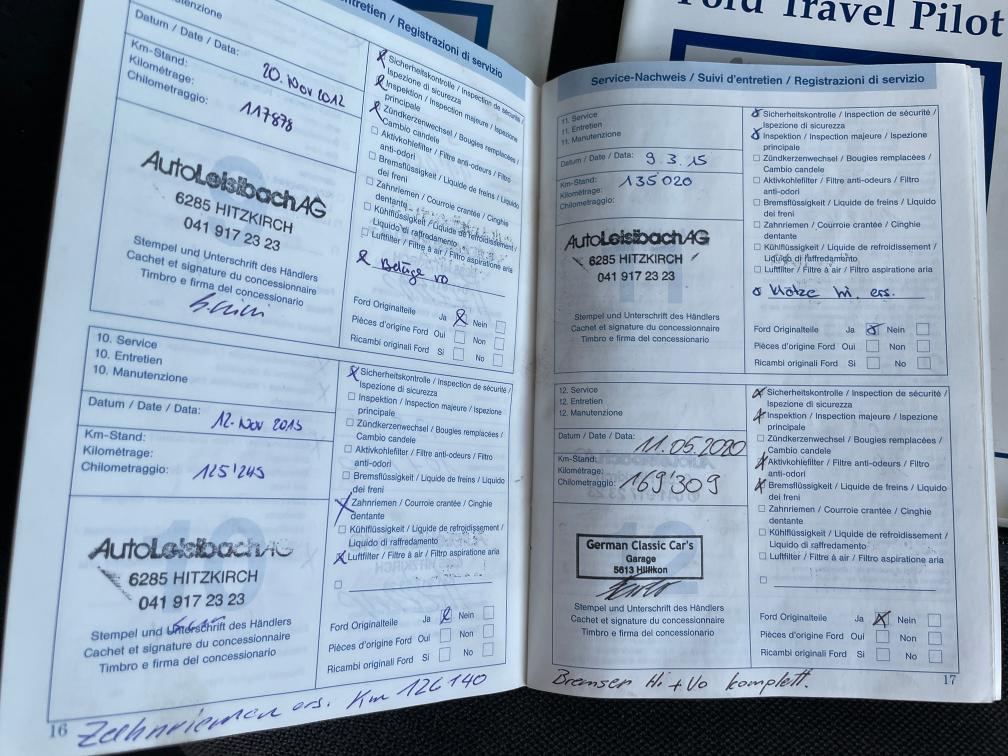 Ford Travel Pilot
ntretien / Registrazioni di servizio
utenzione
Datum / Date / Data:
20. Nov 2012
Km-Stand:
Kilométrage:
Chilometraggio:
117878
AutoLeisibachAG
6285 HITZKIRCH
041 917 23 23
Stempel und Unterschrift des Händlers
Cachet et signature du concessionnaire
Timbro e firma del concessionario
Sicherheitskontrolle / Inspection de sécurité /
Ispezione di sicurezza
Inspektion / Inspection majeure / Ispezione
principale
Zündkerzenwechsel / Bougies remplacées /
Cambio candele
Aktivkohlefilter / Filtre anti-odeurs / Filtro
anti-odori
Bremsflüssigkeit / Liquide de freins / Liquido
dei freni
Zahnriemen / Courroie crantée / Cinghie
dentante
Kühlflüssigkeit / Liquide de refroidissement /
Liquido di raffredamento
Luftfilter / Filtre à air / Filtro aspiratione aria
Beläge vo
Ford Originalteile Ja Nein
Pièces d'origine Ford Oui Non
Ricambi originali Ford Si No
10. Service
10. Entretien
10. Manutenzione
Datum / Date / Data:
12. Nov 2013
Km-Stand:
Kilométrage:
Chilometraggio:
125'245
AutoLeisibachAG
6285 HITZKIRCH
041 917 23 23
Stempel und Unterschrift des Händlers
Cachet et signature du concessionnaire
Timbro e firma del concessionario
Sicherheitskontrolle / Inspection de sécurité /
Ispezione di sicurezza
Inspektion / Inspection majeure / Ispezione
principale
Zündkerzenwechsel / Bougies remplacées /
Cambio candele
Aktivkohlefilter / Filtre anti-odeurs / Filtro
anti-odori
Bremsflüssigkeit / Liquide de freins / Liquido
dei freni
Zahnriemen / Courroie crantée / Cinghie
dentante
Kühlflüssigkeit / Liquide de refroidissement /
Liquido di raffredamento
Luftfilter / Filtre à air / Filtro aspiratione aria
Ford Originalteile Ja Nein
Pièces d'origine Ford Oui Non
Ricambi originali Ford Si No
16
Zahnriemen ers. Km 126140
Service-Nachweis / Suivi d'entretien / Registrazioni di servizio
11. Service
11. Entretien
11. Manutenzione
Datum / Date / Data: 9.3.15
Km-Stand:
Kilométrage:
Chilometraggio:
135020
AutoLeisibachAG
6285 HITZKIRCH
041 917 23 23
11
Stempel und Unterschrift des Händlers
Cachet et signature du concessionnaire
Timbro e firma del concessionario
Sicherheitskontrolle / Inspection de sécurité /
Ispezione di sicurezza
Inspektion / Inspection majeure / Ispezione
principale
Zündkerzenwechsel / Bougies remplacées /
Cambio candele
Aktivkohlefilter / Filtre anti-odeurs / Filtro
anti-odori
Bremsflüssigkeit / Liquide de freins / Liquido
dei freni
Zahnriemen / Courroie crantée / Cinghie
dentante
Kühlflüssigkeit / Liquide de refroidissement /
Liquido di raffredamento
Luftfilter / Filtre à air / Filtro aspiratione aria
Klötze hi. ers.
Ford Originalteile Ja Nein
Pièces d'origine Ford Oui Non
Ricambi originali Ford Si No
12. Service
12. Entretien
12. Manutenzione
Datum / Date / Data: 11.05.2020
Km-Stand:
Kilométrage:
Chilometraggio:
169'309
German Classic Car's
Garage
5613 Hilfikon
12
Stempel und Unterschrift des Händlers
Cachet et signature du concessionnaire
Timbro e firma del concessionario
Sicherheitskontrolle / Inspection de sécurité /
Ispezione di sicurezza
Inspektion / Inspection majeure / Ispezione
principale
Zündkerzenwechsel / Bougies remplacées /
Cambio candele
Aktivkohlefilter / Filtre anti-odeurs / Filtro
anti-odori
Bremsflüssigkeit / Liquide de freins / Liquido
dei freni
Zahnriemen / Courroie crantée / Cinghie
dentante
Kühlflüssigkeit / Liquide de refroidissement /
Liquido di raffredamento
Luftfilter / Filtre à air / Filtro aspiratione aria
Ford Originalteile Ja Nein
Pièces d'origine Ford Oui Non
Ricambi originali Ford Si No
17
Bremsen Hi + Vo komplett.